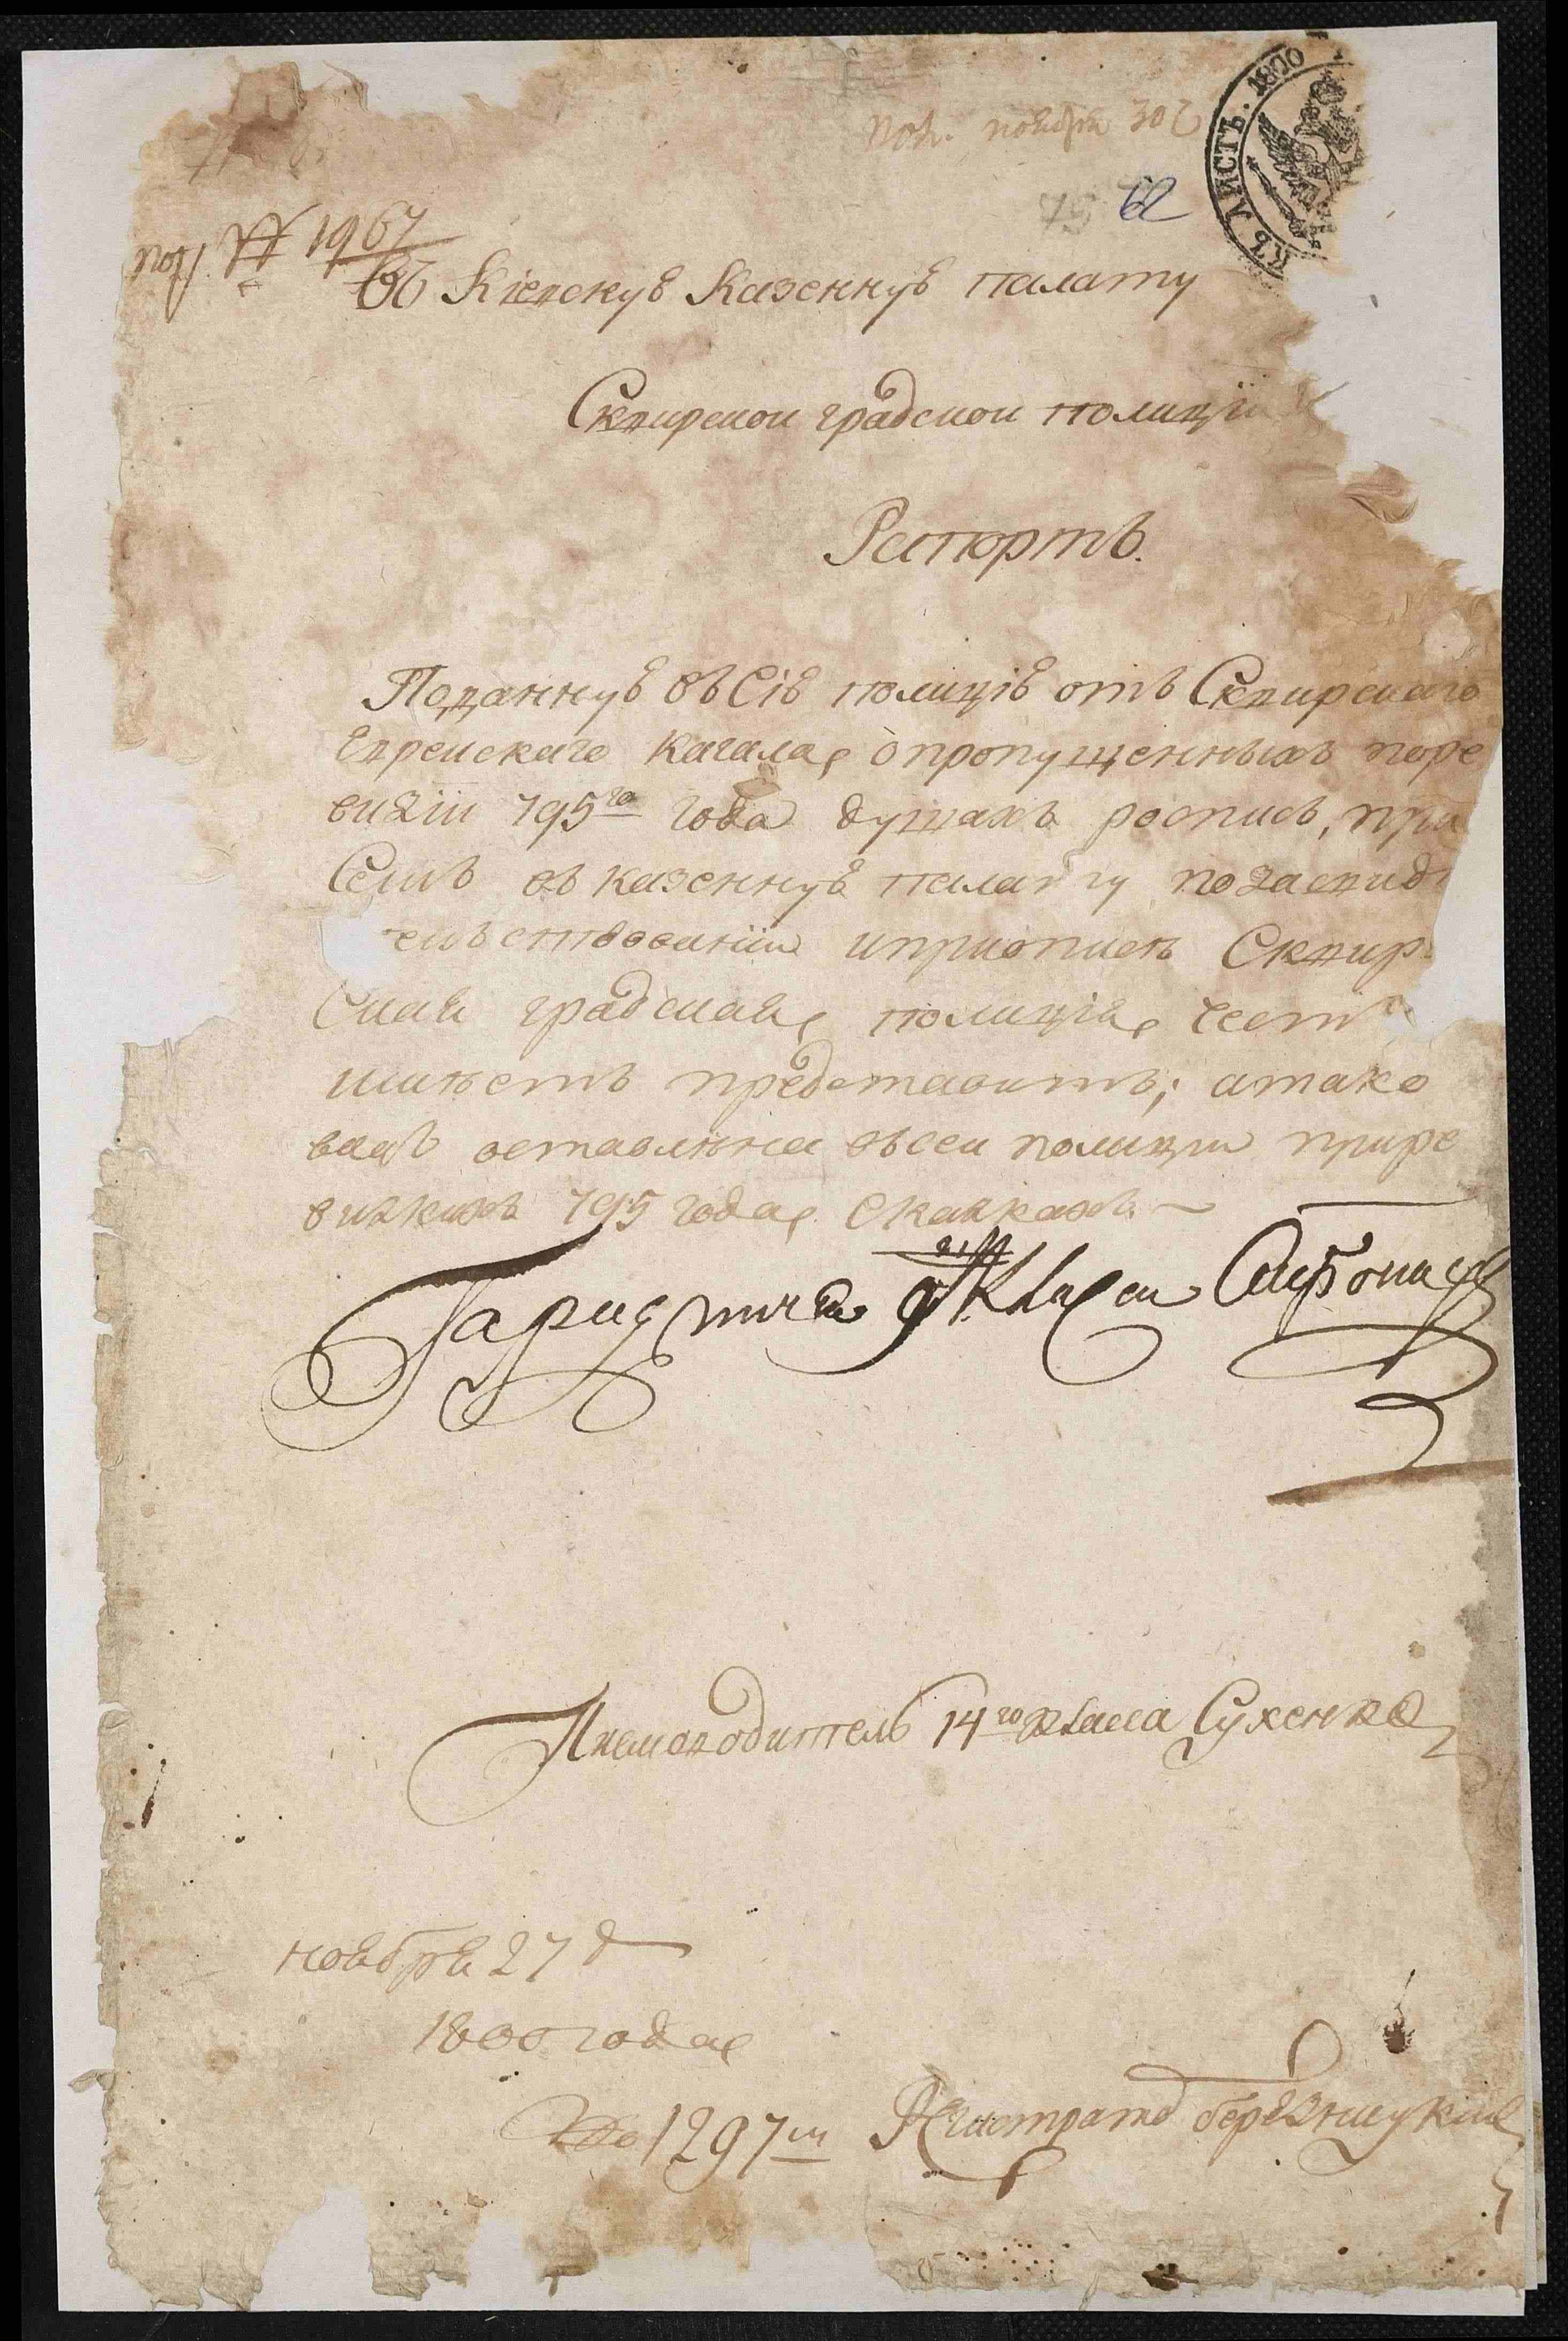 пол. ноября 30 д
КЪ ЛИСТЪ. 1800
75 62
№ 1967
Въ Кіевскую Казенную палату
Сквирской градской полиціи
Рапортъ.
Поданную въ Сію полицію отъ Сквирскаго
Еврейскаго кагала, о пропущенныхъ по ре
визіи 795го года душахъ роспись, при
Семъ въ казенную палату по засвид
тельствованіи и приописи Сквир
Ская градская полиція честь
имеетъ представить; а тако
вая оставлена въ сей полиции при ре
визкихъ 795 года сказкахъ.
Городничей 9 Класа
Писмоводитель 14го класса Сухенко
ноября 27 д
1800 года
№ 1297м
Регистраторъ Березницкий